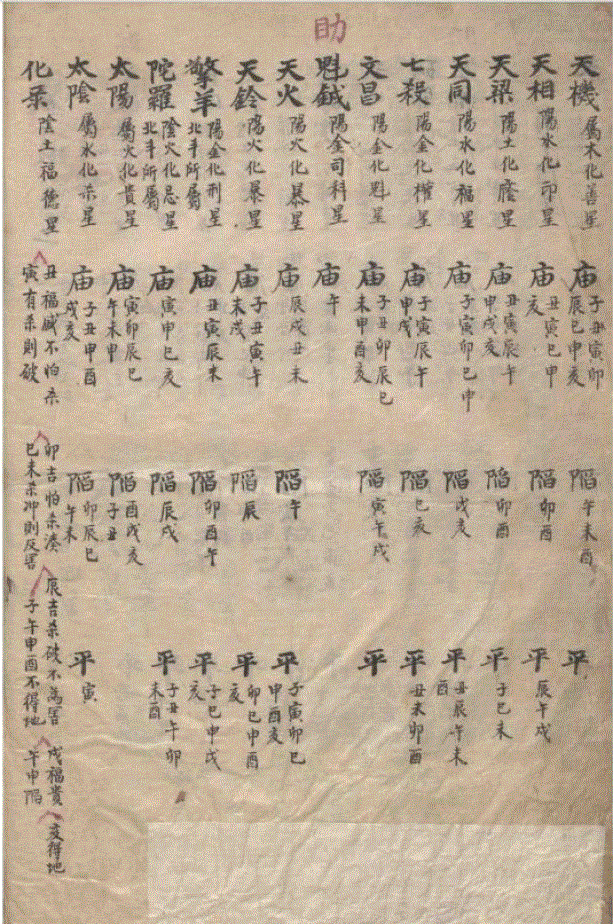 助
天機 屬木化善星 庙 子丑卯辰巳申亥 陷 午未酉 平
天相 陽水化印星 庙 丑寅巳申亥 陷 卯酉 平 辰午戌
天梁 陽土化廕星 庙 丑寅辰午申戌亥 陷 卯酉 平 子巳未
天同 陽水化福星 庙 子寅卯巳申 陷 戌亥 平 丑辰午未酉
七殺 陽金化權星 庙 子寅辰午申戌 陷 巳亥 平 丑未卯酉
文昌 陽金化魁星 庙 子丑卯辰巳未申酉亥 陷 寅午戌 平
魁鉞 陽金司科星 庙 午
天火 陽火化暴星 庙 辰戌丑未 陷 午 平 子寅卯巳申酉亥
天鈴 陽火化暴星 庙 子丑寅午未戌 陷 辰 平 卯巳申酉亥
擎羊 陽金化刑星 北斗所屬 庙 丑寅辰未 陷 卯酉午 平 子巳申戌亥
陀羅 陰火化忌星 北斗所屬 庙 寅申巳亥 陷 辰戌 平 子丑午卯未酉
太陽 屬火化貴星 庙 寅卯辰巳午未申 陷 酉戌亥子丑
太陰 屬水化杀星 庙 子丑申酉戌亥 陷 卯辰巳午未 平 寅
化祿 陰土福德星 丑福减不怕杀 寅有杀則破 卯吉怕杀湊 巳未杀冲則反害 辰吉杀破不為害 子午申酉不得地 戌福貴 午申陷 亥得地